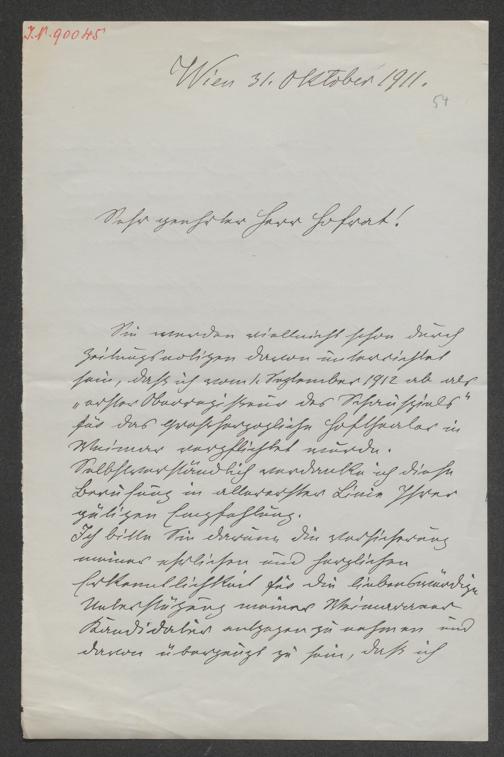 I.N. 90045
Wien 31. Oktober 1911.
54
Sehr geehrter Herr Hofrat!
Sie werden vielleicht schon durch
Zeitungsnotizen davon unterrichtet
sein, daß ich vom 1. September 1912 ab als
„erster Oberregisseur des Schauspiels"
für das großherzogliche Hoftheater in
Weimar verpflichtet wurde.
Selbstverständlich verdanke ich diese
Berufung in allererster Linie Ihrer
gütigen Empfehlung.
Ich bitte Sie darum die Versicherung
meiner ehrlichen und herzlichen
Erkenntlichkeit für die liebenswürdige
Unterstützung meiner Weimaraner
Kandidatur entgegen zu nehmen und
davon überzeugt zu sein, daß ich